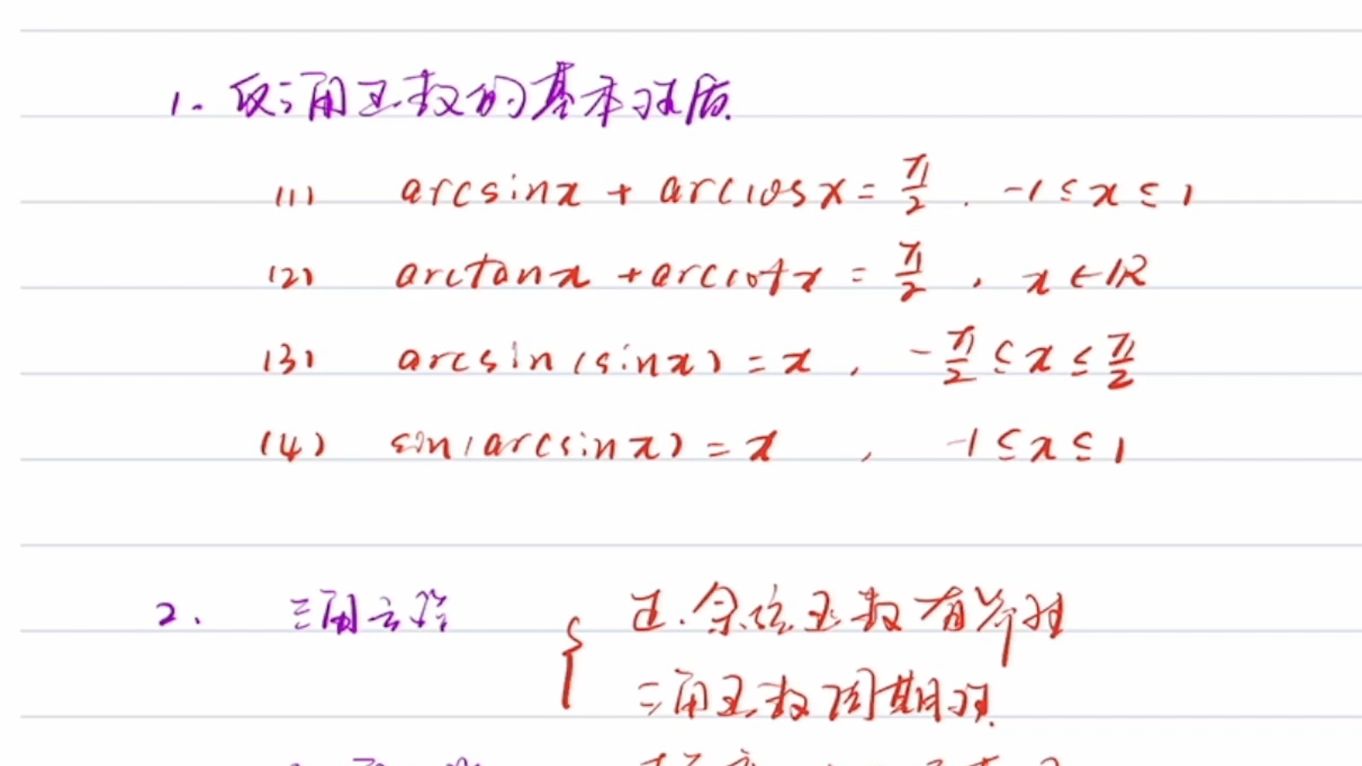 1. 反三角函数的基本性质.
(1) arcsinx + arccosx = π/2 . -1 ≤ x ≤ 1
(2) arctanx + arccotx = π/2 , x ∈ ℝ
(3) arcsin(sinx) = x , -π/2 ≤ x ≤ π/2
(4) sin(arcsinx) = x , -1 ≤ x ≤ 1
2. 三角 { 正.余弦函数有界性
三角函数周期性.